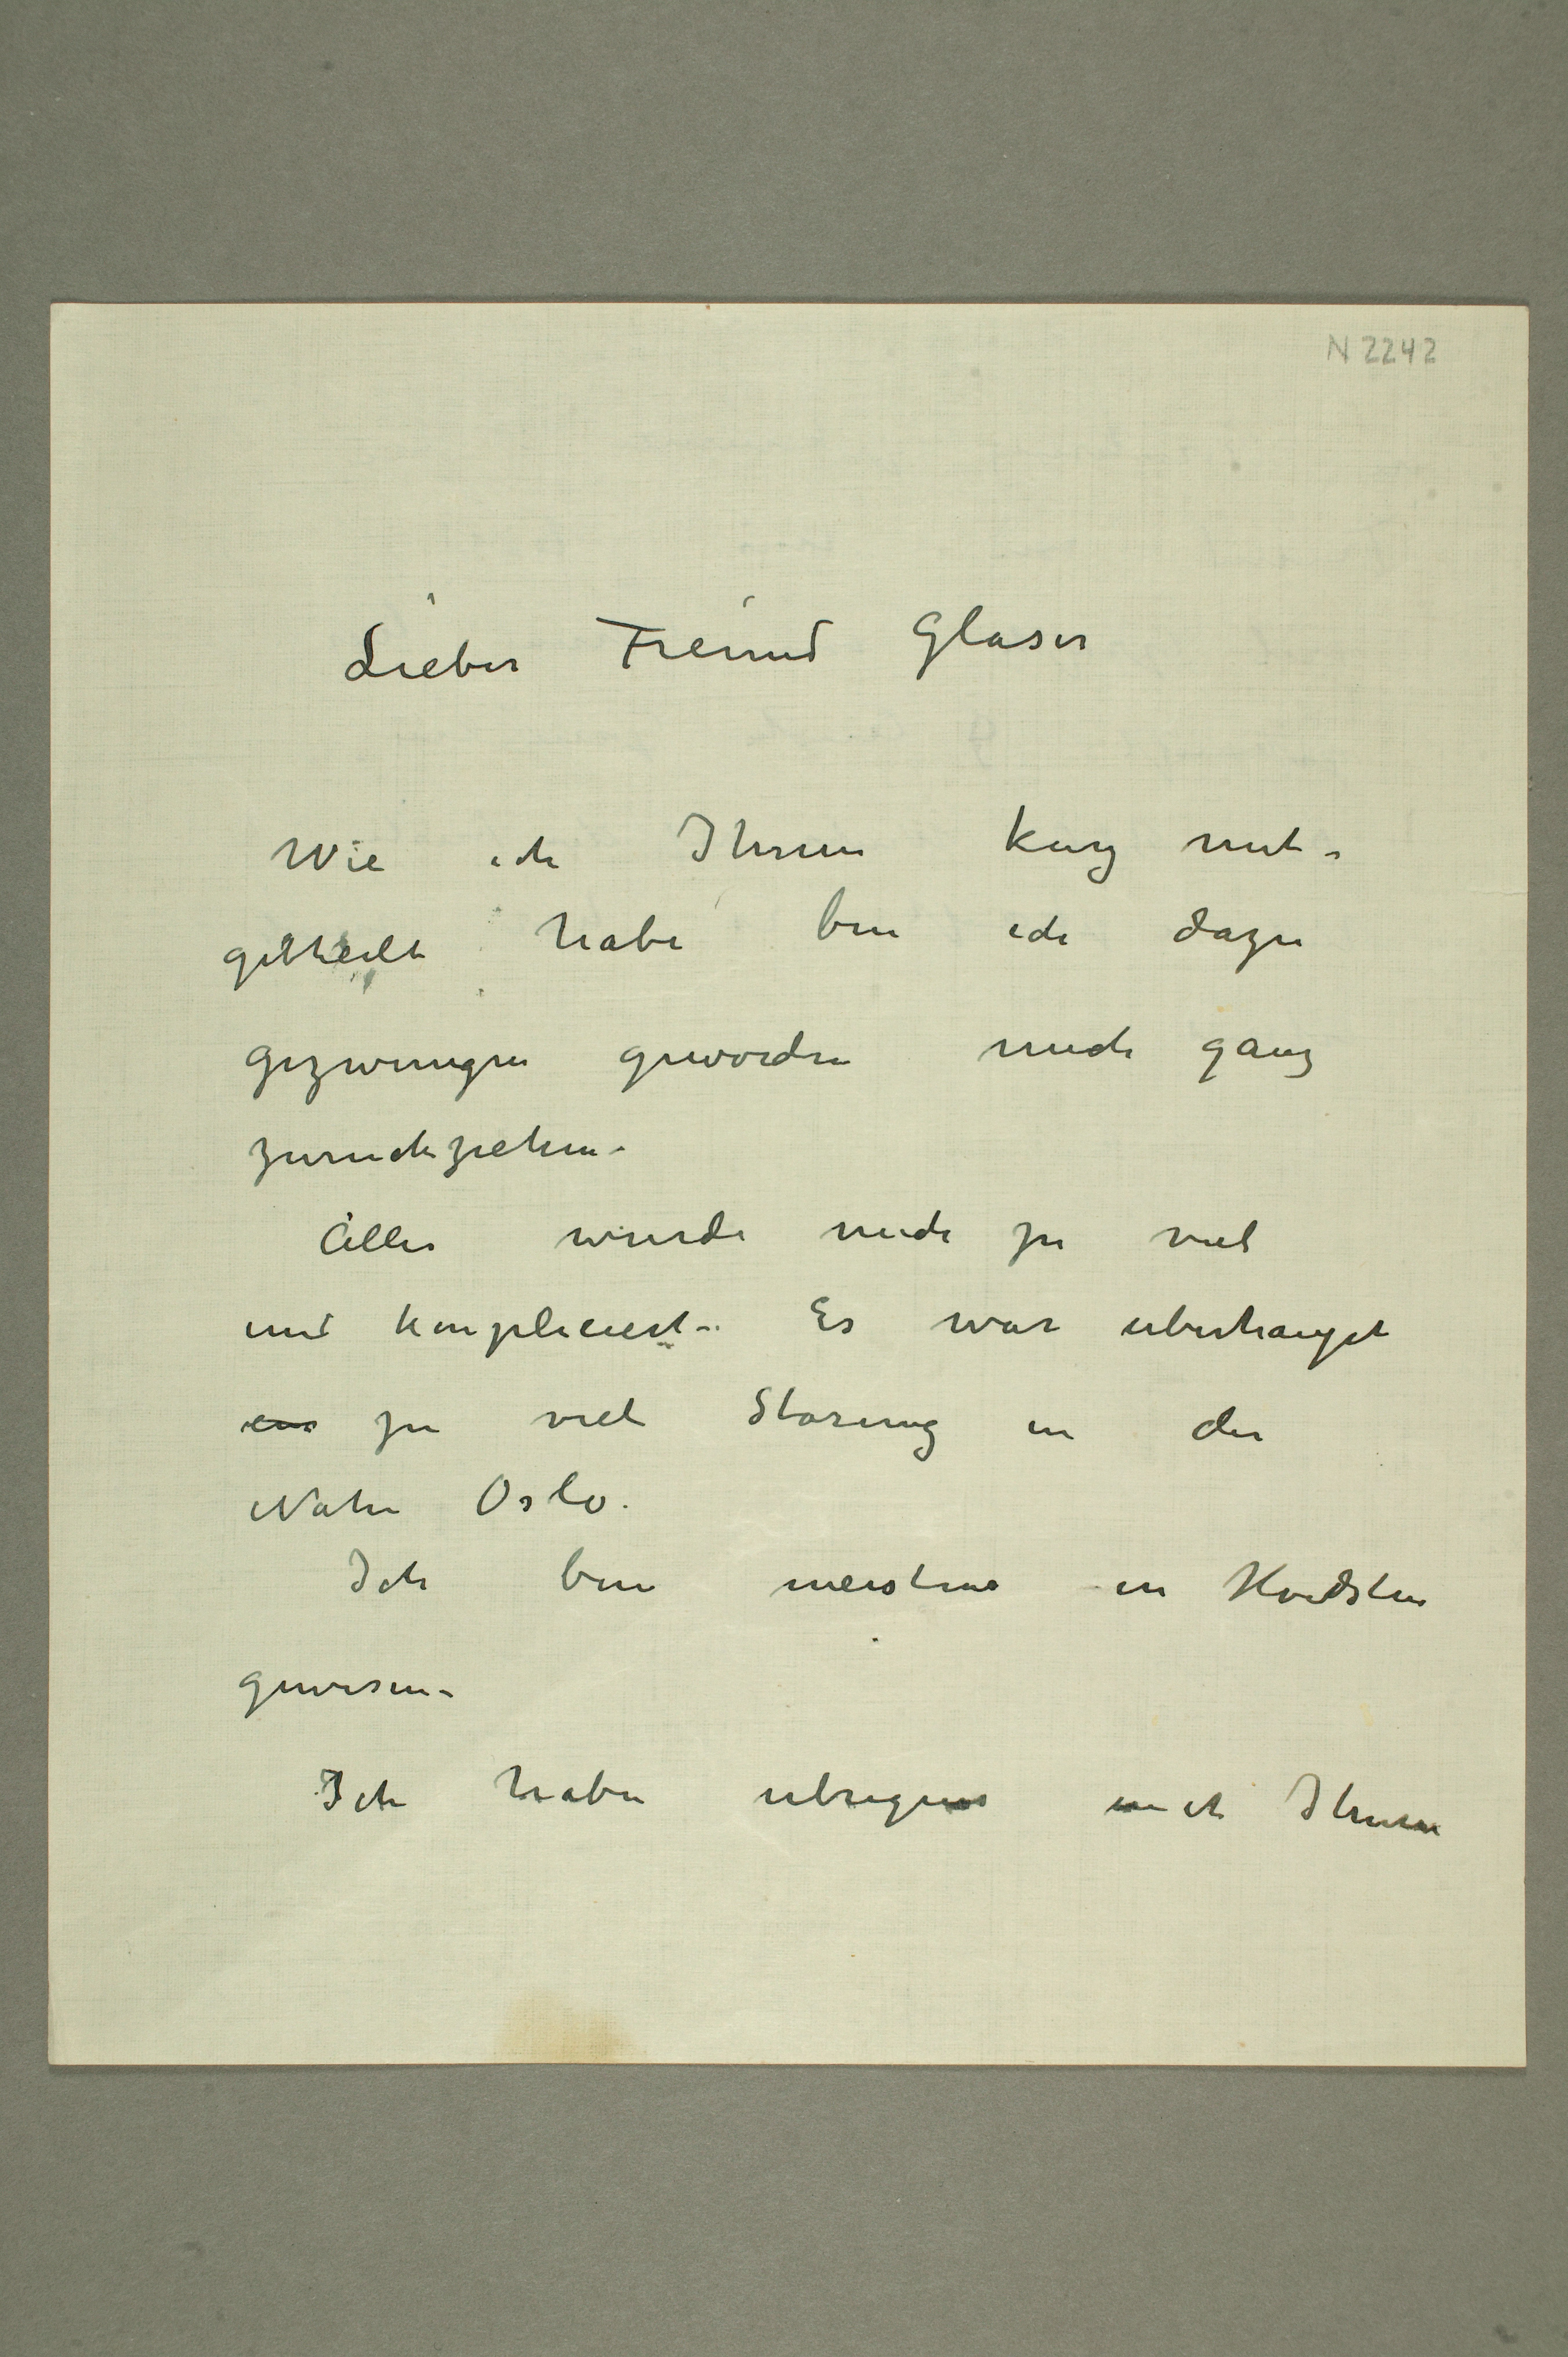 N 2242
Lieber Freund Glaser
Wie ich Ihnen kurz mit-
getheilt habe bin ich dazu
gezwungen geworden mich ganz
zuruckziehen-
Alles wurde mich zu viel
und kompliciert- Es war uberhaupt
ein zu viel Storung in der
Nahe Oslo.
Ich bin meistens in Hvidsten
gewesen-
Ich habe ubrigens mit Ihnen